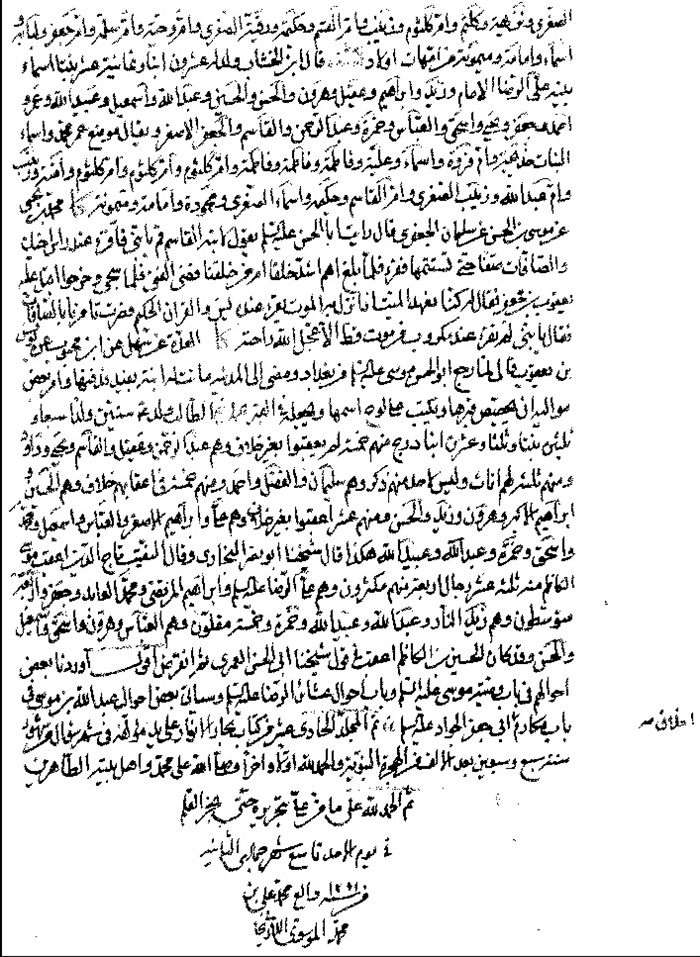 الصغرى و نزيهة و كلثم و ام كلثوم و زينب و ام القسم و حكيمة و رقية الصغرى و ام وحية و ام سلمة و ام جعفر و لبابة و
اسماء و امامة و ميمونة من امهات اولاد قال ابن الخشاب ولد له عشرون ابنا و ثمانية عشر بنتا اسماء
بنيه على الرضا الامام و زيد و ابراهيم و عقيل و هرون و الحسن و الحسين و عبد الله و اسمعيل و عبيد الله و عمر و
احمد و جعفر و يحيى و اسحق و العباس و حمزة و عبد الرحمن و القاسم و جعفر الاصغر و يقال موضع عمر محمد و اسماء
البنات خديجة و ام فروة و اسماء و علية و فاطمة و فاطمة و ام كلثوم و ام كلثوم و ام كلثوم و آمنة و زينب
و ام عبد الله و زينب الصغرى و ام القاسم و حكيمة و اسماء الصغرى و محمودة و امامة و ميمونة كا محمد بن يحيى
عن موسى بن الحسن عن سليمان الجعفرى قال رايت ابا الحسن عليه السلم يقول لابنه القاسم قم يا بنى فاقرء عند راس اخيك
و الصافات صفا حتى تستتمها فقرء فلما بلغ اهم اشد خلقا ام من خلقنا قضى الفتى فلما سجى و خرجوا اقبل عليه
يعقوب بن جعفر فقال له كنا نعهد الميت اذا نزل به الموت يقرء عنده يس و القران الحكيم فصرت تامرنا بالصافات
فقال يا بنى لم تقرء عند مكروب من موت قط الا عجل الله راحته كا العدة عن سهل عن ابن محبوب عن يونس
بن يعقوب قال لما رجع ابو الحسن موسى عليه السلم من بغداد و مضى الى المدينة ماتت له ابنة بفيد فدفنها و امر بعض
مواليه ان يجصص قبرها و يكتب على لوح اسمها و يجعله فى القبر عمدة الطالب ولد موسى ستين ولدا سبعا و
ثلثين بنتا و ثلثا و عشرين ابنا درج منهم خمسة لم يعقبوا بغير خلاف و هم عبد الرحمن و عقيل و القاسم و يحيى و داود
و منهم ثلثة لهم اناث و ليس لاحد منهم ذكر و هم سليمان و الفضل و احمد و منهم خمسة فى اعقابهم خلاف و هم الحسين و
ابراهيم الاكبر و هرون و زيد و الحسن و منهم عشرة اعقبوا بغير خلاف و هم على و ابراهيم الاصغر و العباس و اسمعيل و محمد
و اسحق و حمزة و عبد الله و عبيد الله و جعفر هكذا قال شيخنا ابو نصر البخارى و قال النقيب تاج الدين اعقب موسى
الكاظم من ثلثة عشر رجلا اربعة منهم مكثرون و هم على الرضا عليه السلم و ابراهيم المرتضى و محمد العابد و جعفر و اربعة
متوسطون و هم زيد النار و عبد الله و عبيد الله و حمزة و خمسة مقلون و هم العباس و هرون و اسحق و اسمعيل
و الحسن و قد كان الحسين بن الكاظم اعقب فى قول شيخنا ابى الحسن العمرى ثم انقرض اقول اوردنا بعض
احوالهم فى باب وصية موسى عليه السلم و باب احوال عشائر الرضا عليه السلم و سياتى بعض احوال عبد الله بن موسى فى
باب مكارم ابى جعفر الجواد عليه السلم تم المجلد الحادى عشر من كتاب بحار الانوار على يد مؤلفه فى شهر
سنة سبع و سبعين بعد الالف من الهجرة النبوية و الحمد لله اولا و اخرا و صلى الله على محمد و اهل بيته الطاهرين
ثم الحمد لله على ما من على بتحريره حتى جف القلم
فى يوم الاحد تاسع شهر جمادى الثانية
من سنة محمد على بن
محمد الموسوى